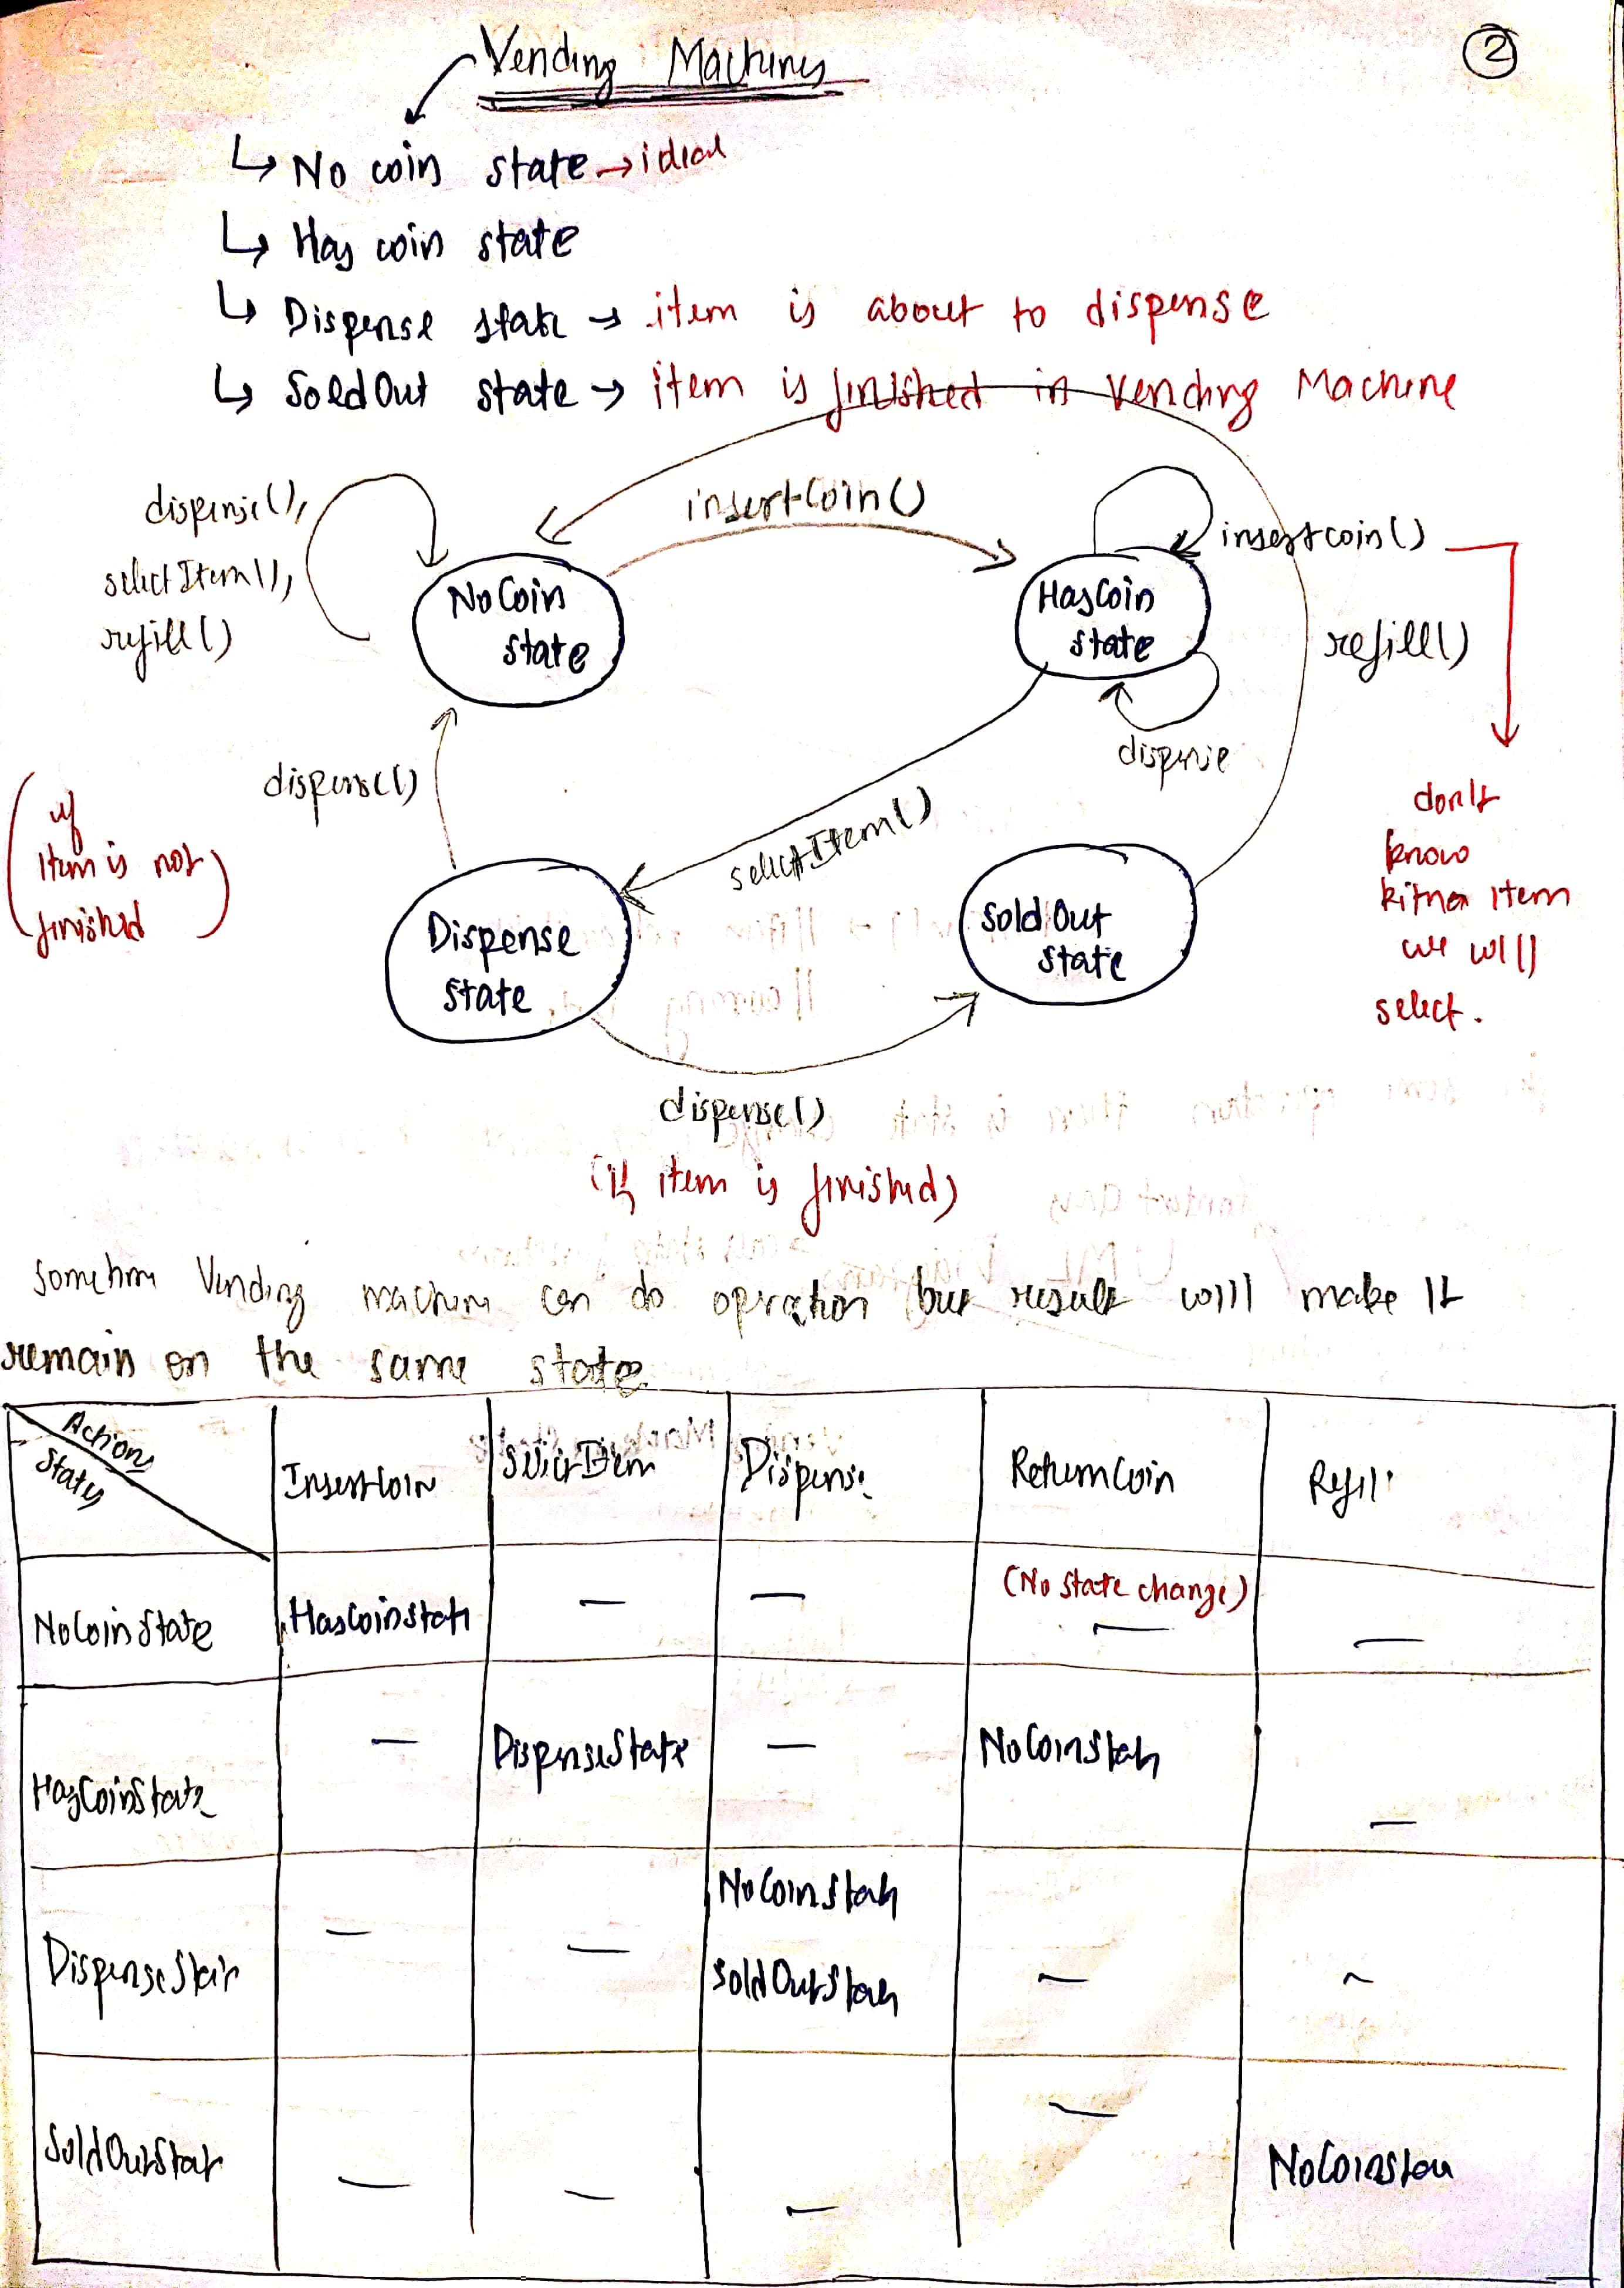 Vending Machines
2
↳ No coin state → ideal
↳ Has coin state
↳ Dispense state → item is about to dispense
↳ SoldOut state → item is finished in Vending Machine
dispense(),
selectItem(),
refill()
insertCoin()
insertcoin()
NoCoin
state
HasCoin
state
refill()
dispense
dispense()
(if
item is not
finished)
selectItem()
don't
know
kitna item
we will
select.
Dispense
state
SoldOut
state
dispense()
(if item is finished)
sometime Vending machine can do operation but result will make it
remain on the same state
Actions
States
InsertCoin
SelectItem
Dispense
ReturnCoin
Refill
NoCoinState
HasCoinState
—
—
(No state change)
—
—
HasCoinState
—
DispenseState
—
NoCoinState
—
DispenseState
—
—
NoCoinState
SoldOutState
—
~
SoldOutState
—
—
—
—
NoCoinState